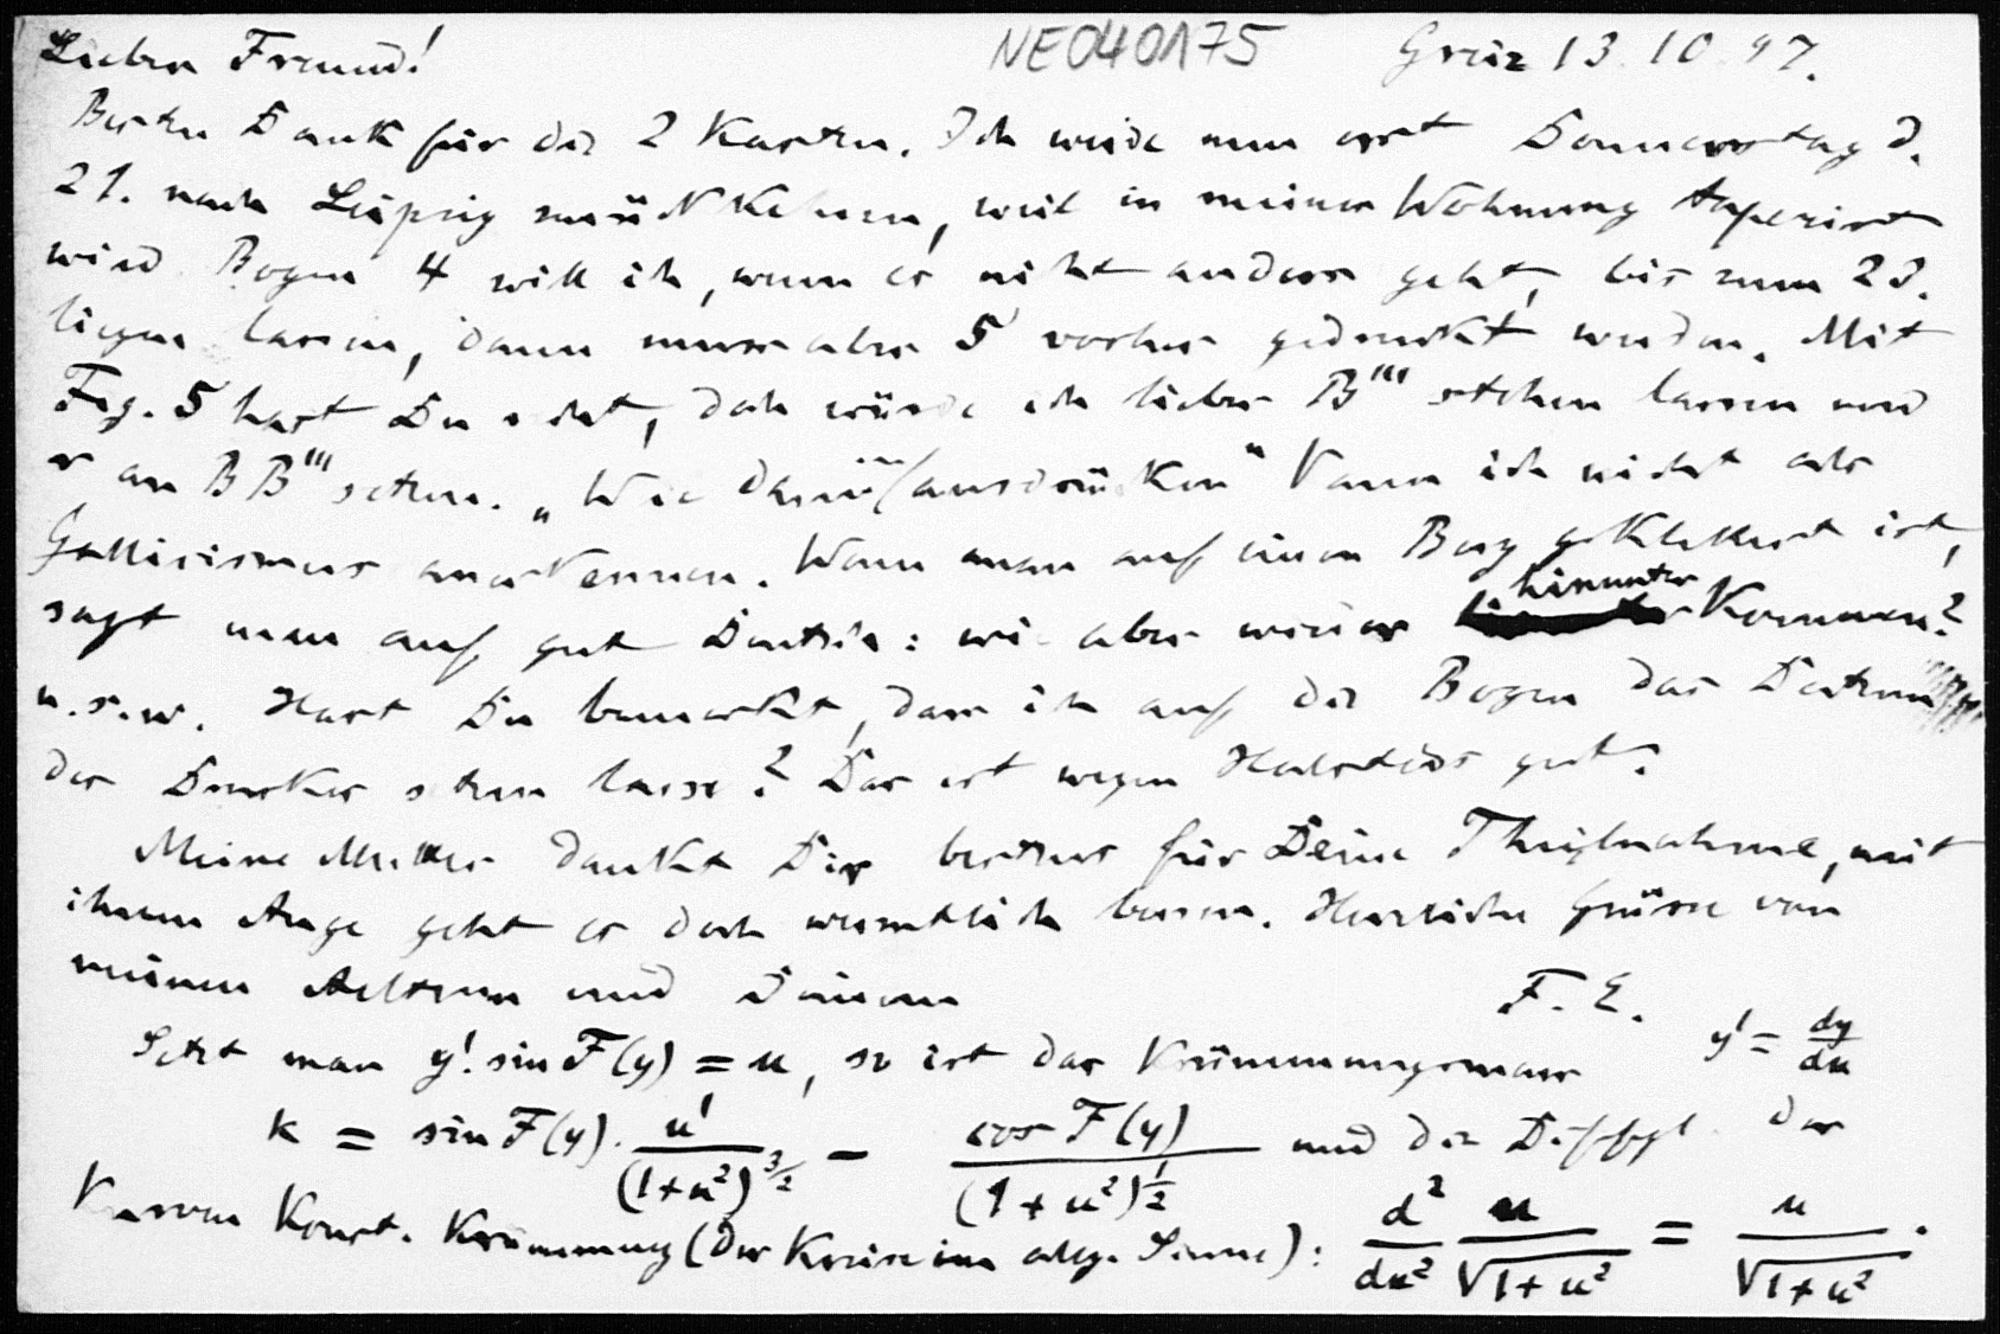 Lieber Freund! NE040175 Greiz 13.10.97.
Besten Dank für die 2 Karten. Ich werde nun erst Donnerstag d.
21. nach Leipzig zurückkehren, weil in meiner Wohnung tapeziert
wird. Bogen 4 will ich, wenn es nicht anders geht, bis zum 23.
liegen lassen, dann muss aber 5 vorher gedruckt werden. Mit
Fig. 5 hast Du recht, doch würde ich lieber B''' stehen lassen und
r an BB''' setzen. „Wie darin ausdrücken“ kann ich nicht als
Gallicismus anerkennen. Wenn man auf einen Berg geklettert ist,
sagt man auf gut Deutsch: wie aber wieder hinunter kommen?
u.s.w. Hast Du bemerkt, dass ich auf die Bogen das Datum
des Druckes setzen lasse? Das ist wegen Halsteds gut.
Meine Mutter dankt Dir bestens für Deine Theilnahme, mit
ihrem Auge geht es doch wesentlich besser. Herzliche Grüsse von
meinen Aeltern und Deinem
F. E.
Setzt man y'. sin F(y) = u, so ist das Krümmungsmass y' = dy/dx
k = sin F(y) . u'/(1+u²)^3/2 − cos F(y)/(1+u²)^1/2 und die Diffgl. der
Kurven konst. Krümmung (der Kreise im allg. Sinne): d²/dx² u/√1+u² = u/√1+u².